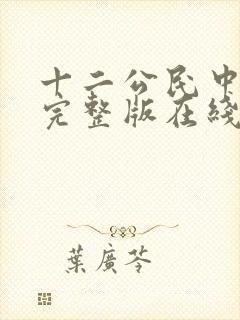 十二公民中
完整版在綫
葉廣芩